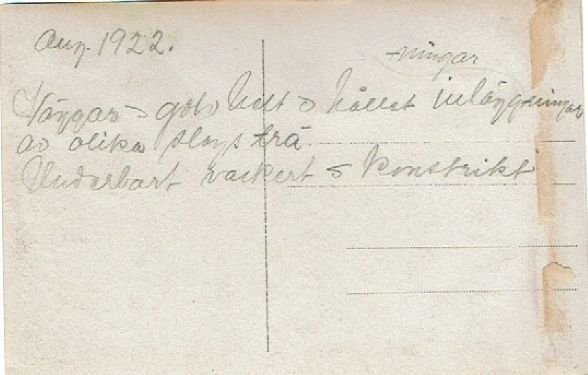 Aug. 1922.
-ningar
Väggar o golv helt o hållet inläggningar
av olika slags trä.
Underbart vackert o konstrikt